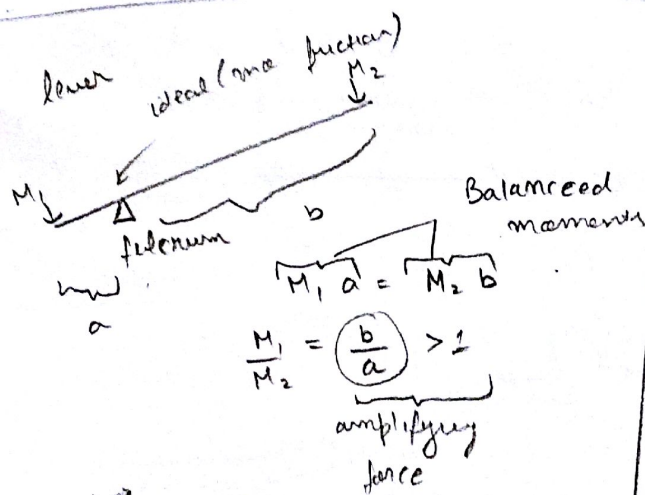 lever
ideal (no friction)
M₂
M₁
fulcrum
b
a
Balanceed
moments
M₁ a = M₂ b
M₁/M₂ = b/a > 1
amplifying
force